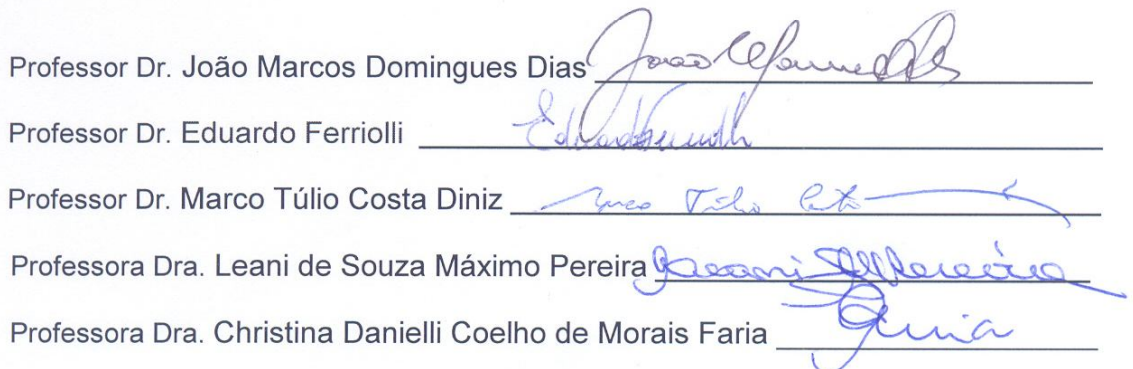 Professor Dr. João Marcos Domingues Dias
Professor Dr. Eduardo Ferriolli
Professor Dr. Marco Túlio Costa Diniz
Professora Dra. Leani de Souza Máximo Pereira
Professora Dra. Christina Danielli Coelho de Morais Faria